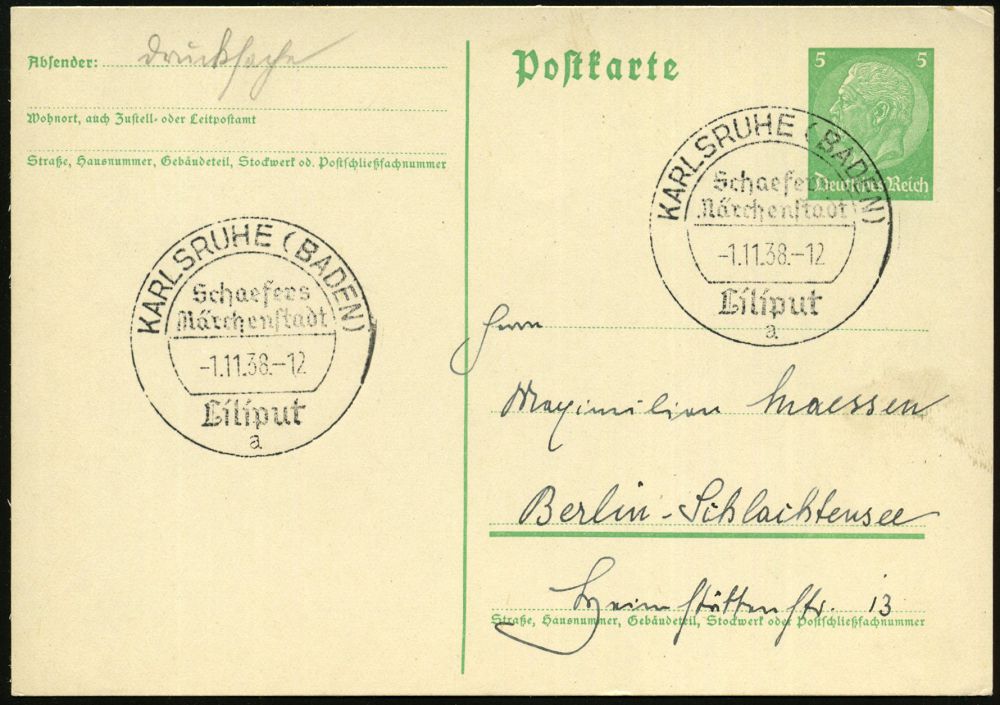 Absender: Drucksache
Wohnort, auch Zustell- oder Leitpostamt
Straße, Hausnummer, Gebäudeteil, Stockwerk od. Postschließfachnummer
KARLSRUHE (BADEN)
Schaefers
Märchenstadt
-1.11.38.-12
Liliput
a
Postkarte
5 5
Deutsches Reich
KARLSRUHE (BADEN)
Schaefers
Märchenstadt
-1.11.38.-12
Liliput
a
Herrn
Maximilian Maessen
Berlin-Schlachtensee
Heimstättenstr. 13
Straße, Hausnummer, Gebäudeteil, Stockwerk oder Postschließfachnummer